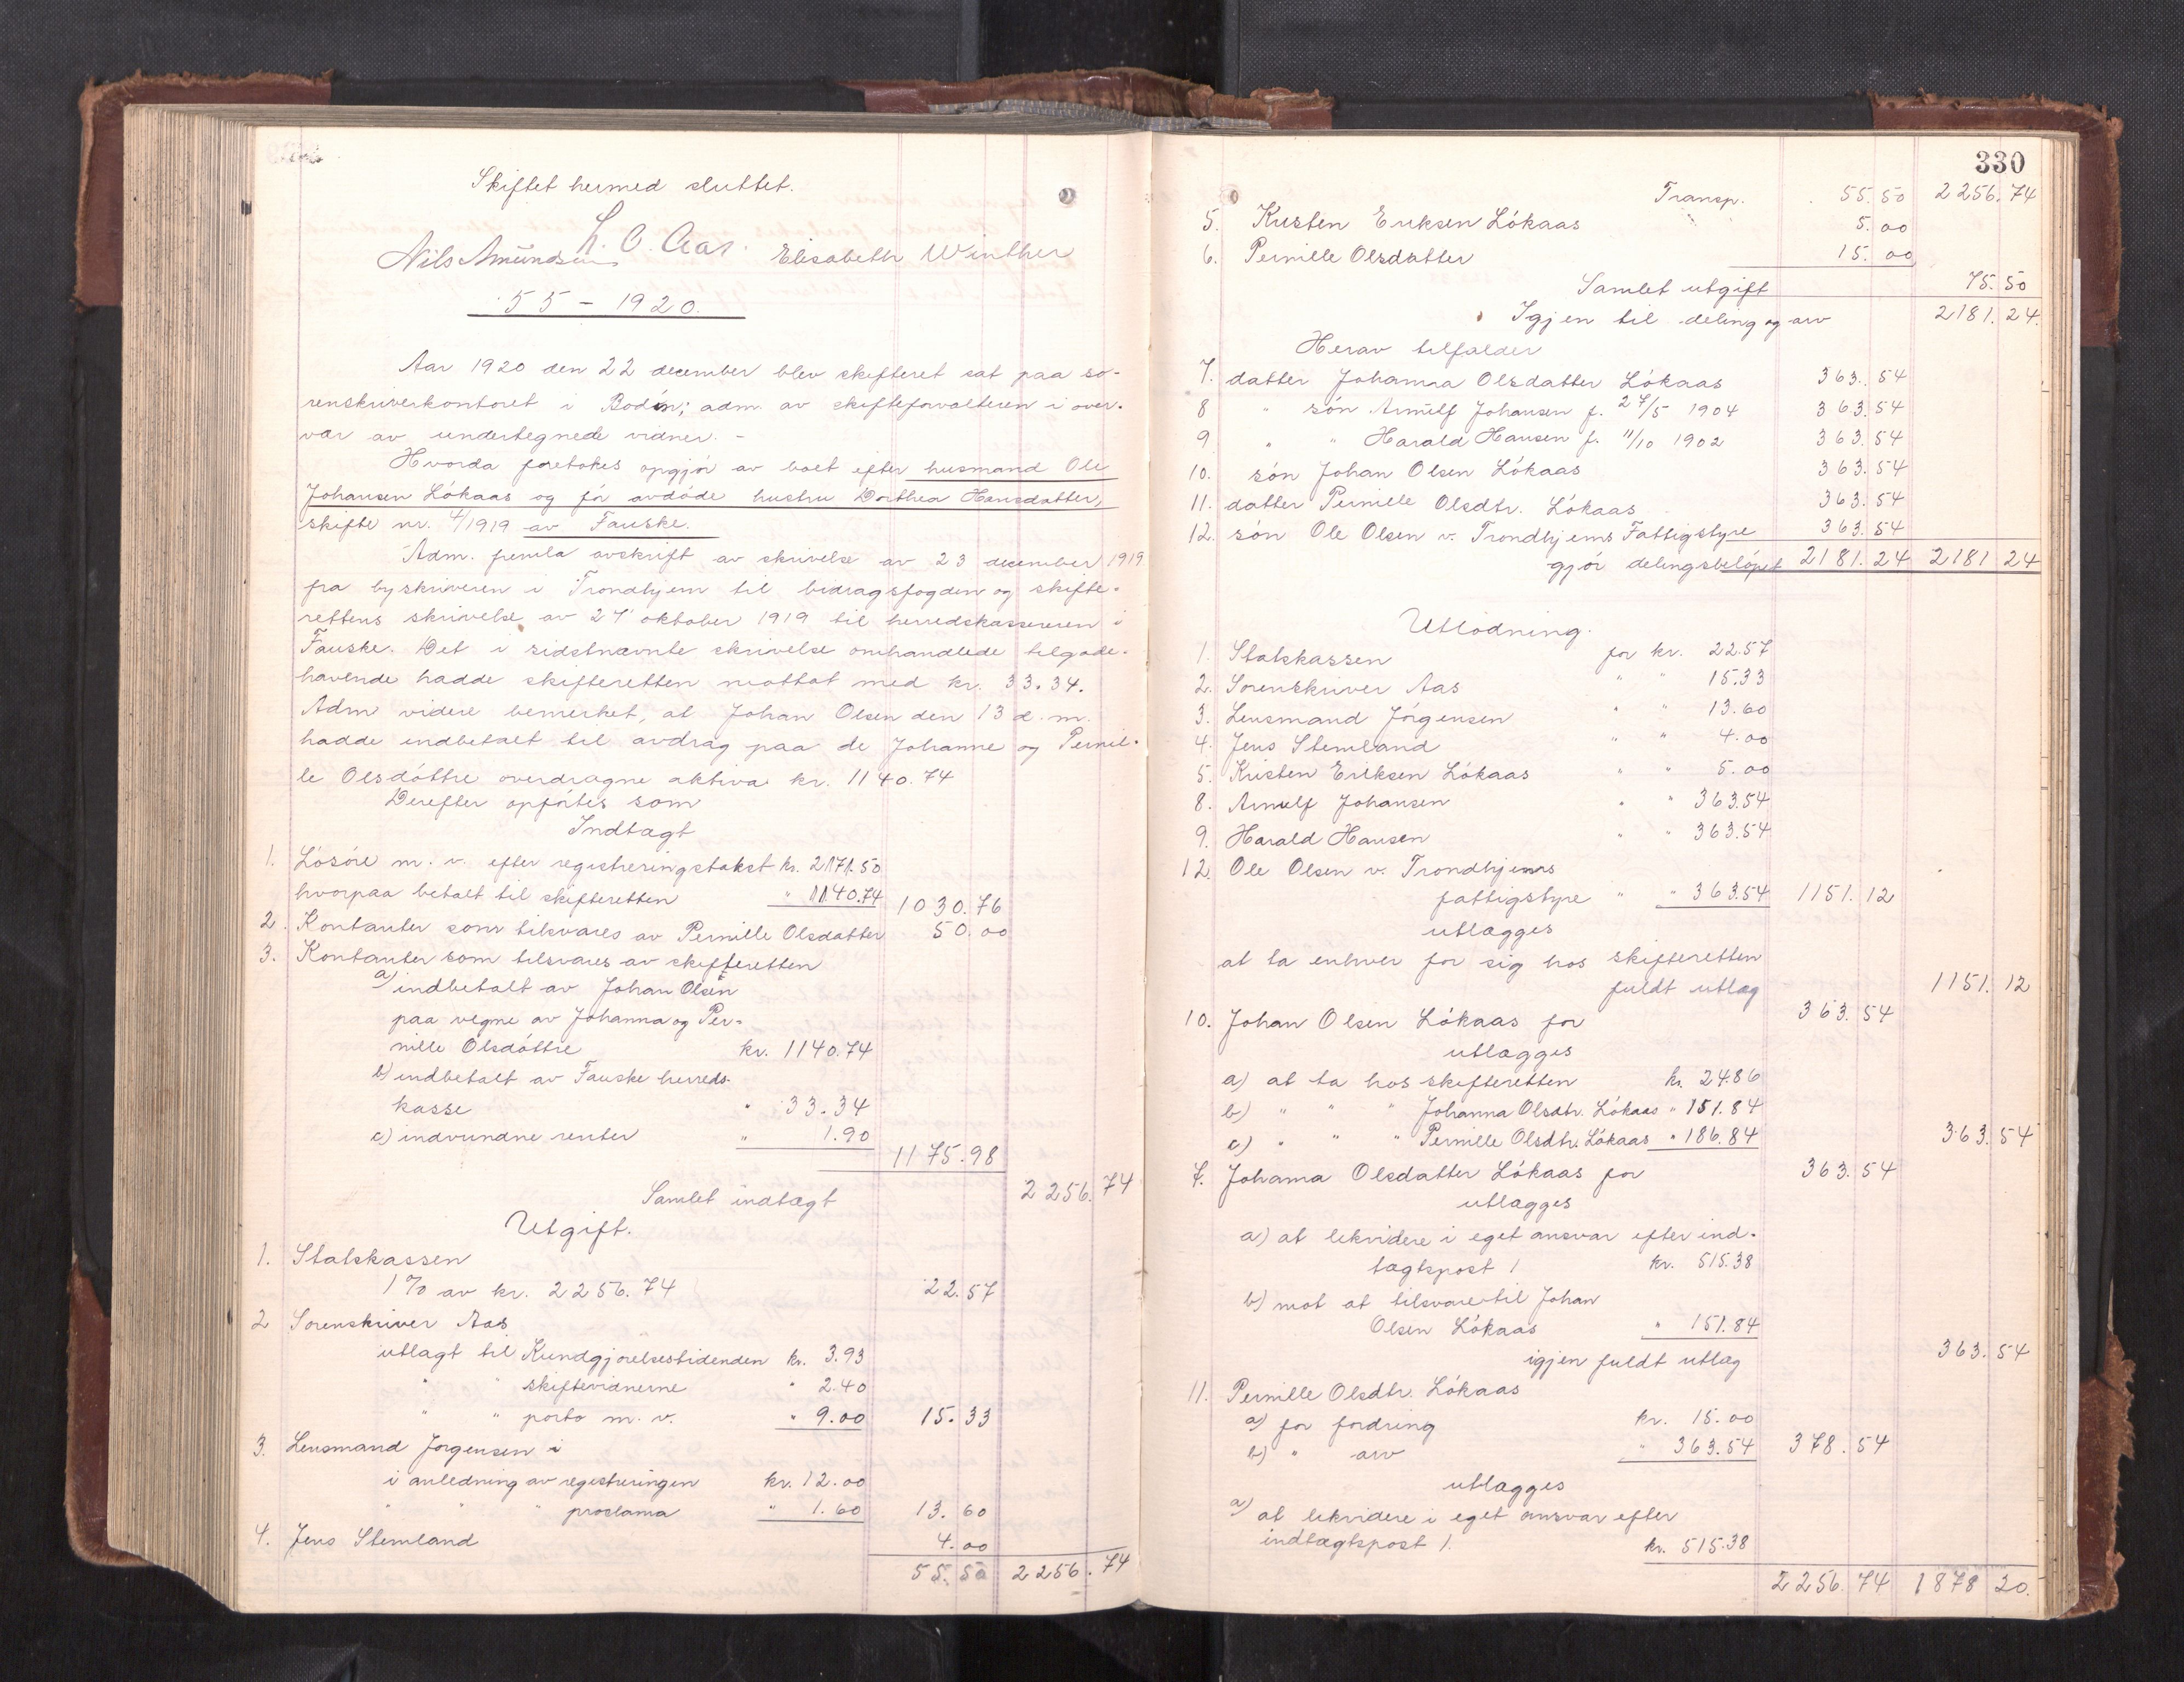 Skiftet hermed sluttet.
L. O. Aas.
Nils Amundsen Elisabeth Winther
55 - 1920.
Aar 1920 den 22 december blev skifteret sat paa so-
renskriverkontoret i Bodin; adm. av skifteforvalteren i over-
vær av undertegnede vidner. -
Hvorda foretokes opgjör av boet efter husmand Ole
Johansen Lökaas og för avdöde hustru Dorthea Hansdatter,
skifte nr. 4/1919 av Fauske.
Adm. fremla avskrift av skrivelse av 23 december 1919
fra byskriveren i Trondhjem til bidragsfogden og skifte-
rettens skrivelse av 27 oktober 1919 til herredskassereren i
Fauske. Det i sidstnævnte skrivelse omhandlede tilgode-
havende hadde skifteretten mottat med kr. 33.34.
Adm videre bemerket, at Johan Olsen den 13 d. m.
hadde indbetalt til avdrag paa de Johanne og Pernil-
le Olsdöttre overdragne aktiva kr. 1140.74
Derefter opförtes som
Indtægt
1. Lösöre m. v. efter registreringstakst kr. 2171.50
hvorpaa betalt til skifteretten " 1140.74 1030.76
2. Kontanter som tilsvares av Pernille Olsdatter 50.00
3. Kontanter som tilsvares av skifteretten
a) indbetalt av Johan Olsen
paa vegne av Johanna og Per-
nille Olsdöttre kr. 1140.74
b) indbetalt av Fauske herreds-
kasse " 33.34
c) indvundne renter " 1.90
1175.98
Samlet indtægt 2256.74
Utgift.
1. Statskassen
1% av kr. 2256.74 22.57
2 Sorenskriver Aas
utlagt til Kundgjörelsestidenden kr. 3.93
" " skiftevidnerne " 2.40
" " porto m. v. " 9.00 15.33
3. Lensmand Jörgensen i
i anledning av registreringen kr. 12.00
" " " proclama " 1.60 13.60
4. Jens Stemland 4.00
55.50 2256.74
330
Transp. 55.50 2256.74
5. Kristen Eriksen Lökaas 5.00
6. Pernille Olsdatter 15.00
Samlet utgift 75.50
Igjen til deling og arv 2181.24.
Herav tilfalder
7. datter Johanna Olsdatter Lökaas 363.54
8 " sön Arnulf Johansen f. 27/5 1904 363.54
9 " " Harald Hansen f. 11/10 1902 363.54
10. sön Johan Olsen Lökaas 363.54
11. datter Pernille Olsdtr. Lökaas 363.54
12. sön Ole Olsen v. Trondhjems Fattigstyre 363.54
gjör delingsbelöpet 2181.24 2181 24
Utlodning.
1. Statskassen for kr. 22.57
2. Sorenskriver Aas " " 15.33
3. Lensmand Jörgensen " " 13.60
4. Jens Stemland " " 4.00
5. Kristen Eriksen Lökaas " " 5.00
8. Arnulf Johansen " " 363.54
9. Harald Hansen " " 363.54
12. Ole Olsen v. Trondhjems
fattigstyre " " 363.54 1151.12
utlægges
at ta enhver for sig hos skifteretten
fuldt utlæg 1151.12
10. Johan Olsen Lökaas for 363.54
utlægges
a) at ta hos skifteretten kr. 24.86
b) " " " Johanna Olsdtr. Lökaas " 151.84
c) " " " Pernille Olsdtr. Lökaas " 186.84 363.54
7. Johanna Olsdatter Lökaas for 363.54
utlægges
a) at likvidere i eget ansvar efter ind-
tægtspost 1 kr. 515.38
b) mot at tilsvare til Johan
Olsen Lökaas " 151.84
igjen fuldt utlæg 363.54
11. Pernille Olsdtr. Lökaas
a) for fordring kr. 15.00
b) " arv " 363.54 378.54
utlægges
a) at likvidere i eget ansvar efter
indtægtspost 1. kr. 515.38
2256.74 1878 20.